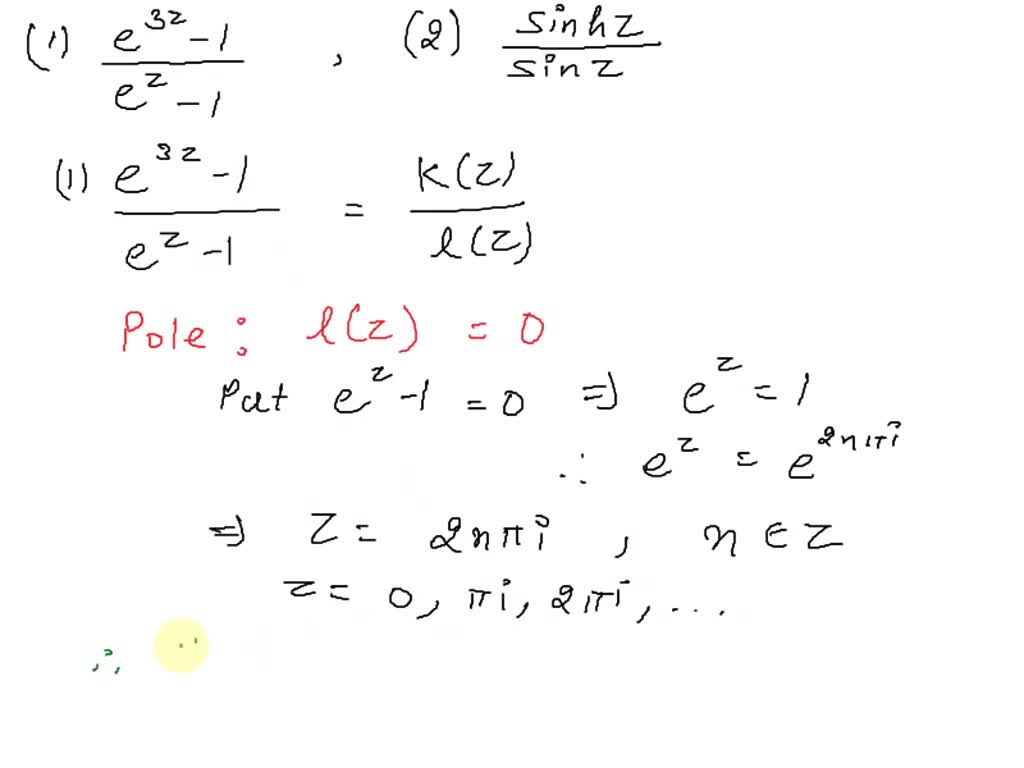 (1) \frac{e^{3z}-1}{e^z-1} , (2) \frac{sinhz}{sinz}
(1) \frac{e^{3z}-1}{e^z-1} = \frac{k(z)}{l(z)}
Pole : l(z) = 0
Put e^z-1 = 0 ⇒ e^z = 1
∴ e^z = e^{2nπi}
⇒ z = 2nπi , n ∈ Z
z = 0, πi, 2πi, ...
∴